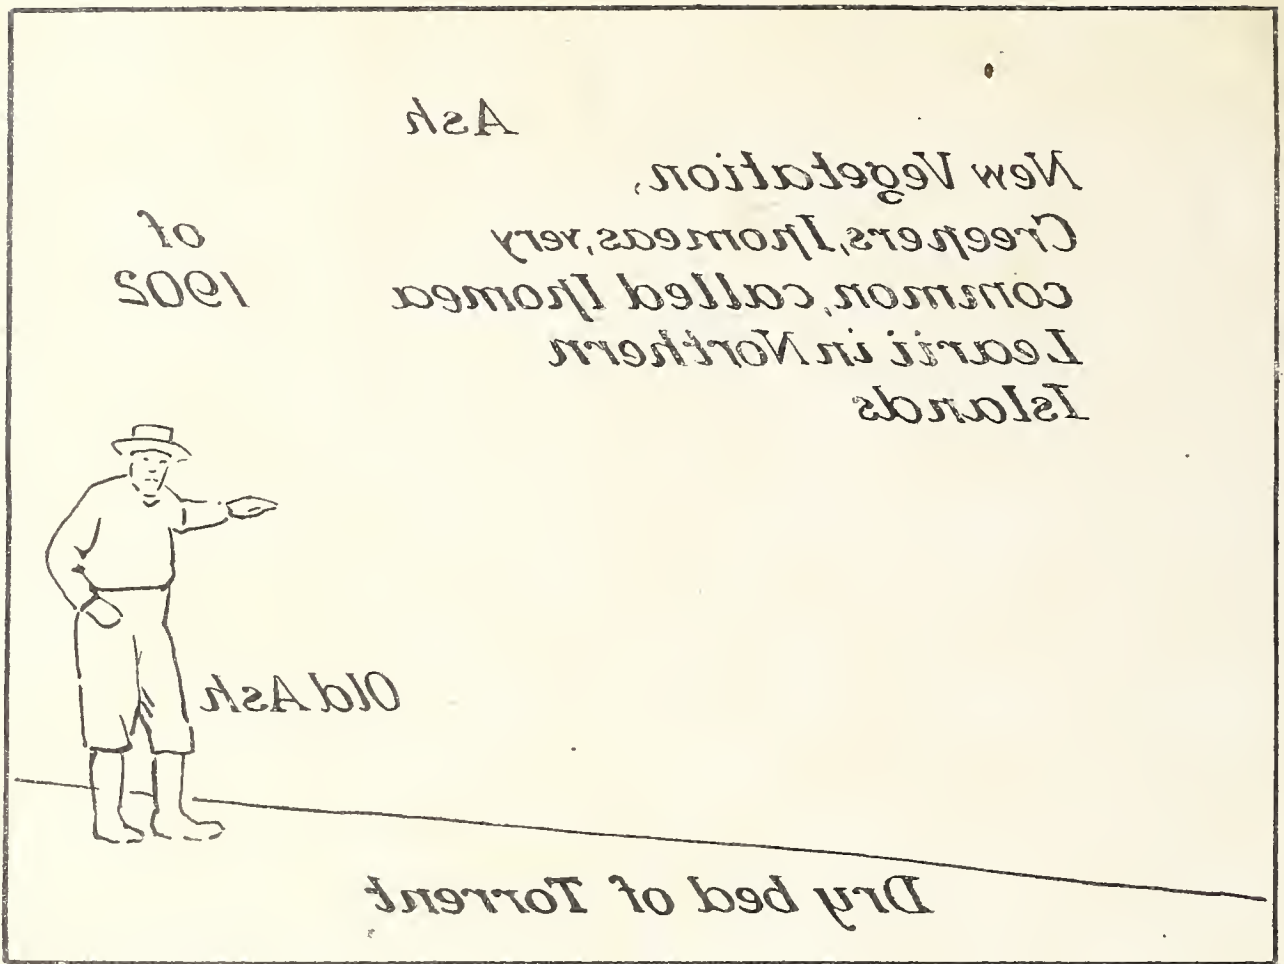 Ash
of
1902
New Vegetation,
Creepers, Ipomeas, very
common, called Ipomea
Learii in Northern
Islands
Old Ash
Dry bed of Torrent